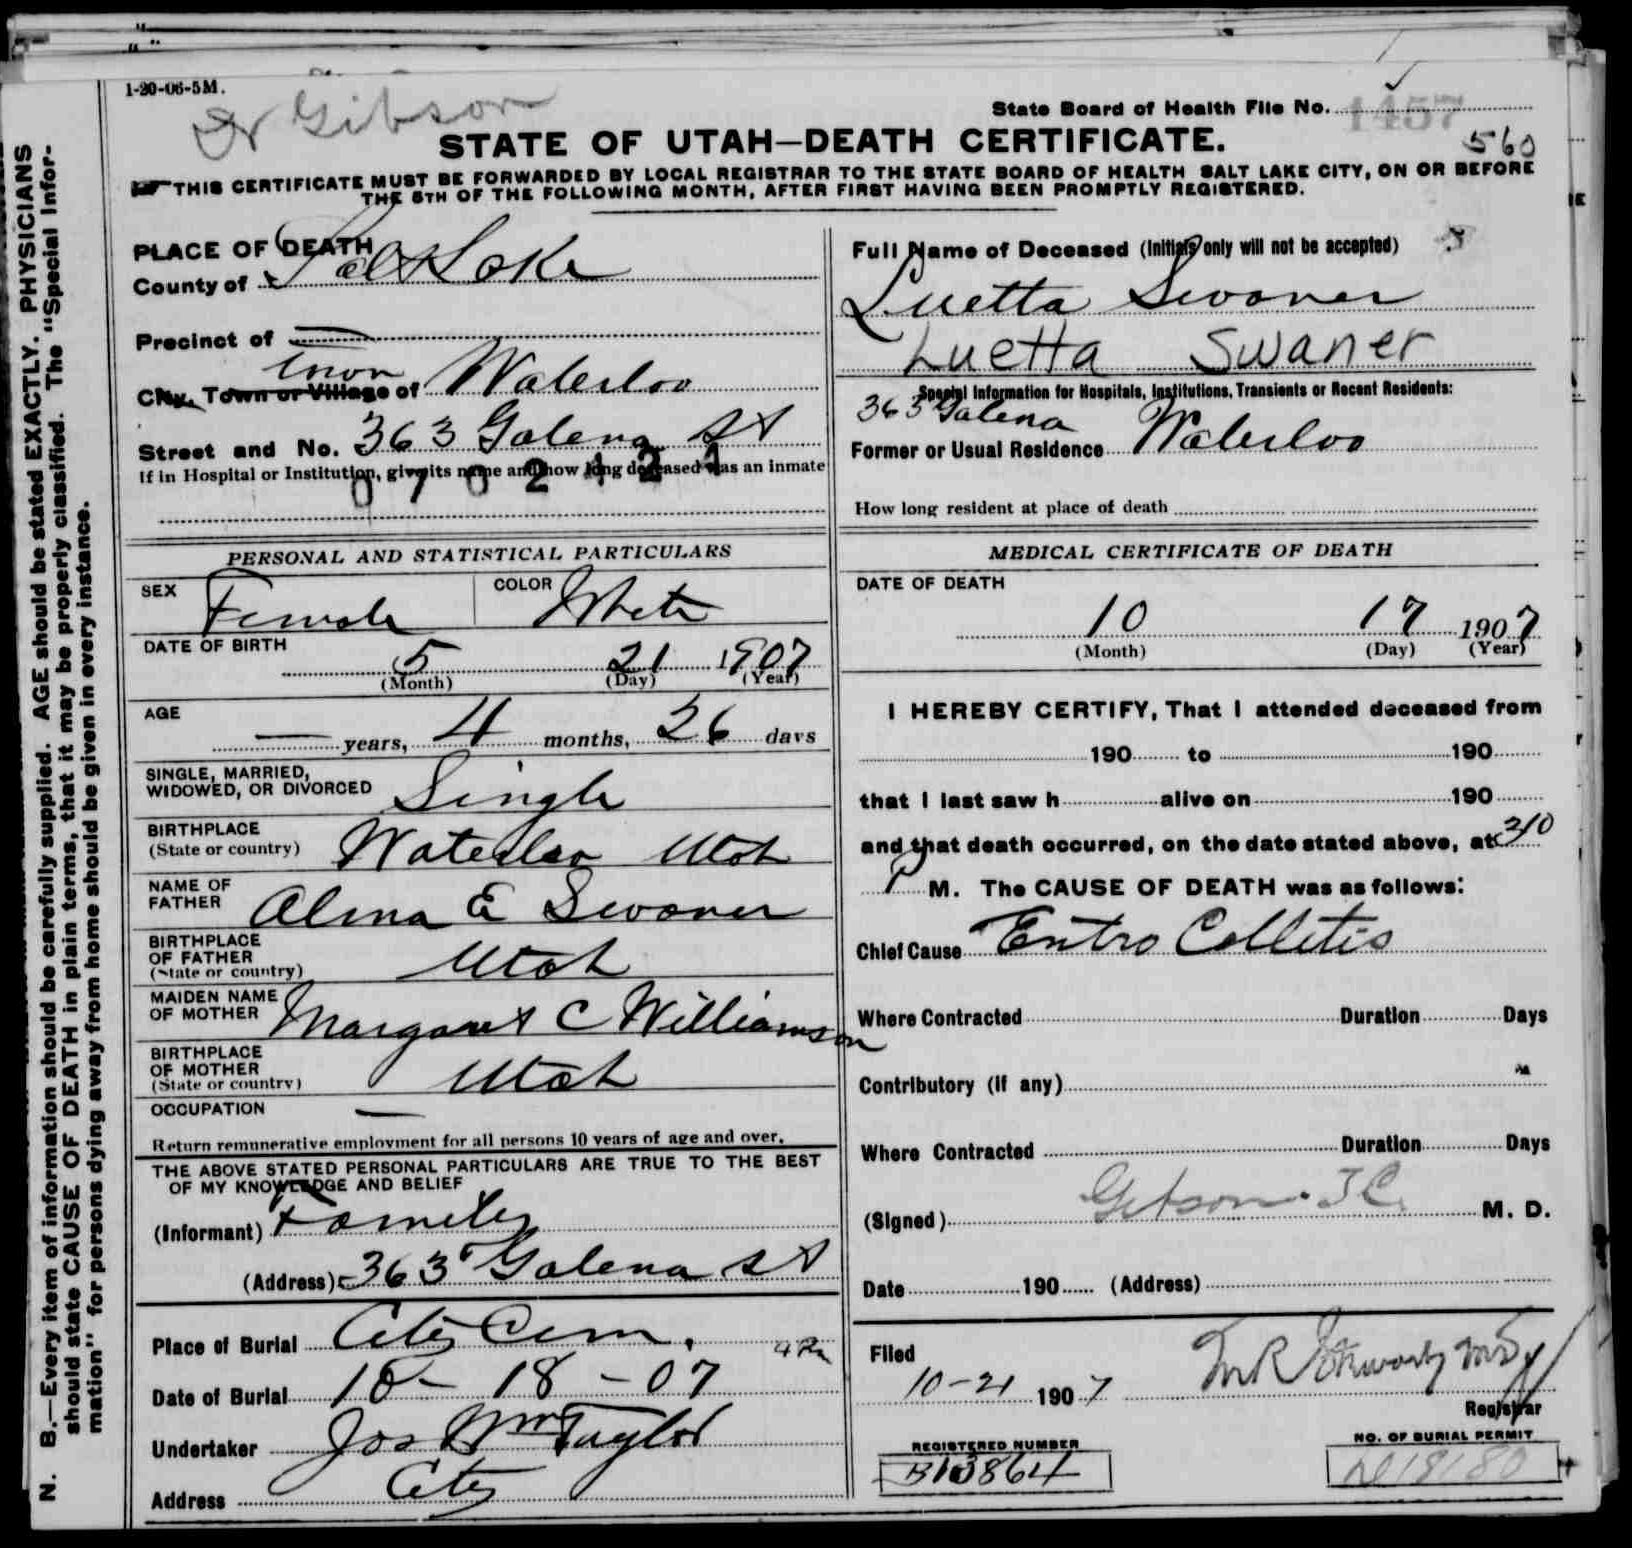 1-20-06-5M.
Dr Gibson
State Board of Health File No. 1457
560
STATE OF UTAH—DEATH CERTIFICATE.
THIS CERTIFICATE MUST BE FORWARDED BY LOCAL REGISTRAR TO THE STATE BOARD OF HEALTH SALT LAKE CITY, ON OR BEFORE
THE 5TH OF THE FOLLOWING MONTH, AFTER FIRST HAVING BEEN PROMPTLY REGISTERED.
N. B.—Every item of information should be carefully supplied. AGE should be stated EXACTLY. PHYSICIANS
should state CAUSE OF DEATH in plain terms, that it may be properly classified. The "Special Infor-
mation" for persons dying away from home should be given in every instance.
PLACE OF DEATH
County of Salt Lake
Precinct of —
City, Town or Village of Waterloo
Street and No. 363 Galena St
If in Hospital or Institution, give its name and how long deceased was an inmate
0702421
PERSONAL AND STATISTICAL PARTICULARS
SEX Female COLOR White
DATE OF BIRTH
5 21 1907
(Month) (Day) (Year)
AGE
— years, 4 months, 26 days
SINGLE, MARRIED,
WIDOWED, OR DIVORCED Single
BIRTHPLACE
(State or country) Waterloo Utah
NAME OF
FATHER Alma E Swaner
BIRTHPLACE
OF FATHER
(State or country) Utah
MAIDEN NAME
OF MOTHER Margaret C Williamson
BIRTHPLACE
OF MOTHER
(State or country) Utah
OCCUPATION —
Return remunerative employment for all persons 10 years of age and over.
THE ABOVE STATED PERSONAL PARTICULARS ARE TRUE TO THE BEST
OF MY KNOWLEDGE AND BELIEF
(Informant) Family
(Address) 363 Galena St
Place of Burial City Cem.
Date of Burial 10- 18 -07
Undertaker Jos Wm Taylor
Address City
Full Name of Deceased (Initials only will not be accepted)
Luetta Swaner
Luetta Swaner
Special Information for Hospitals, Institutions, Transients or Recent Residents:
363 Galena
Former or Usual Residence Waterloo
How long resident at place of death
MEDICAL CERTIFICATE OF DEATH
DATE OF DEATH
10 17 1907
(Month) (Day) (Year)
I HEREBY CERTIFY, That I attended deceased from
190 to 190
that I last saw h alive on 190
and that death occurred, on the date stated above, at 310
P M. The CAUSE OF DEATH was as follows:
Chief Cause Entro Collitis
Where Contracted Duration Days
Contributory (if any)
Where Contracted Duration Days
(Signed) Gibson M. D.
Date 190 (Address)
Filed
10-21 1907
Registrar
REGISTERED NUMBER
B13864
NO. OF BURIAL PERMIT
D18180